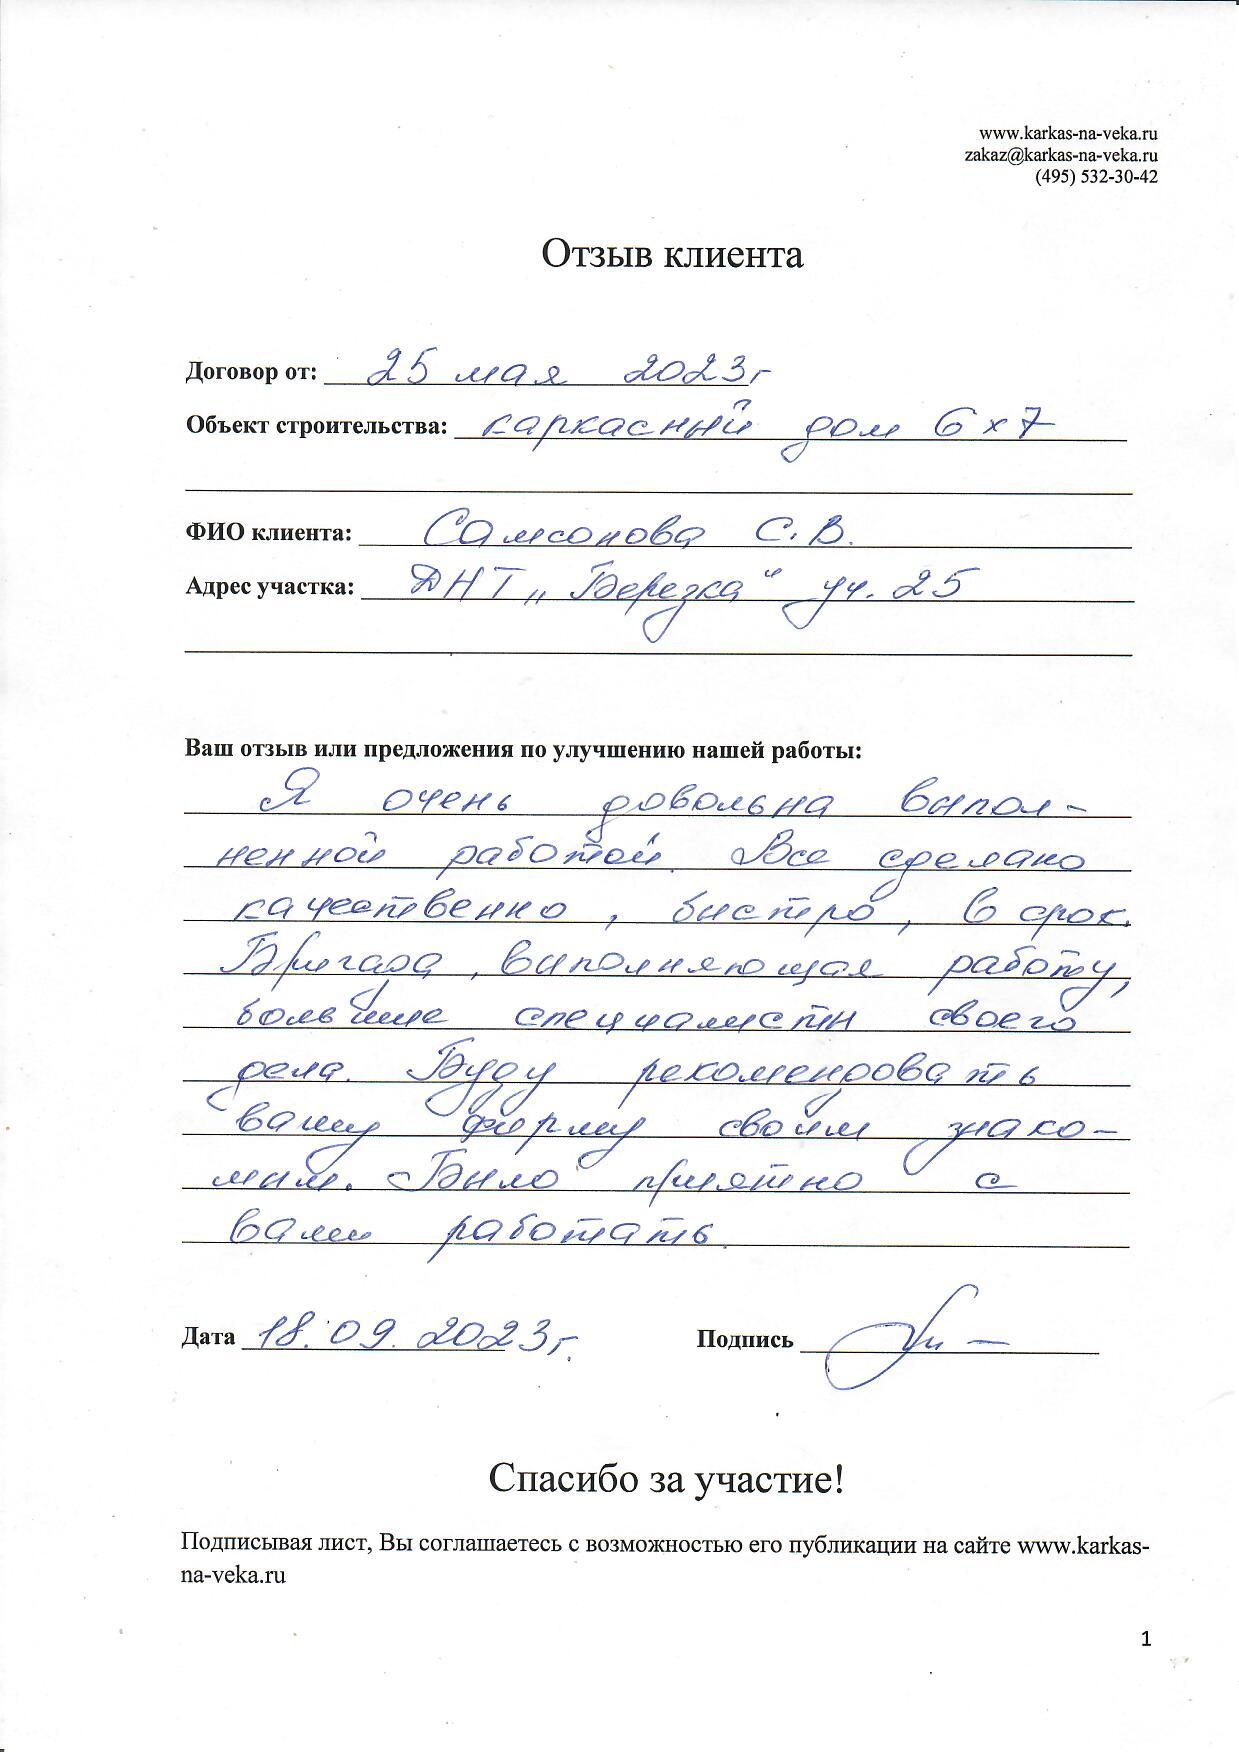 www.karkas-na-veka.ru
zakaz@karkas-na-veka.ru
(495) 532-30-42
Отзыв клиента
Договор от: 25 мая 2023г
Объект строительства: каркасный дом 6х7
ФИО клиента: Самсонова С.В.
Адрес участка: ДНТ „Березка“ уч. 25
Ваш отзыв или предложения по улучшению нашей работы:
Я очень довольна выпол-
ненной работой. Все сделано
качественно, быстро, в срок.
Бригада, выполняющая работу,
большие специалисты своего
дела. Буду рекомендовать
вашу фирму своим знако-
мым. Было приятно с
вами работать.
Дата 18.09.2023г. Подпись
Спасибо за участие!
Подписывая лист, Вы соглашаетесь с возможностью его публикации на сайте www.karkas-
na-veka.ru
1